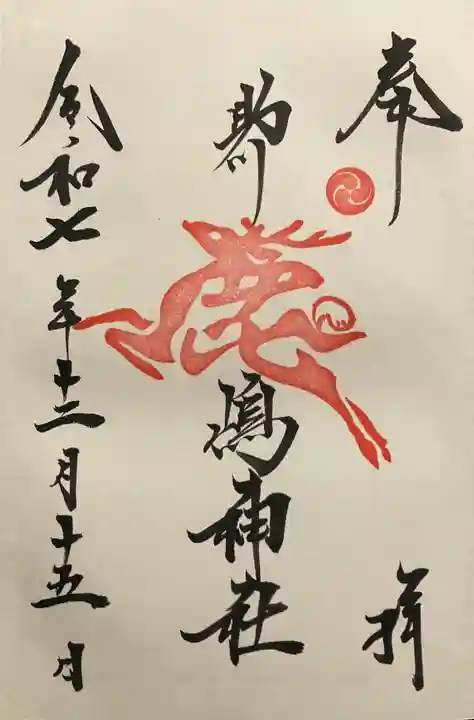 奉拝
助川
鹿嶋神社
令和七年十二月十五日